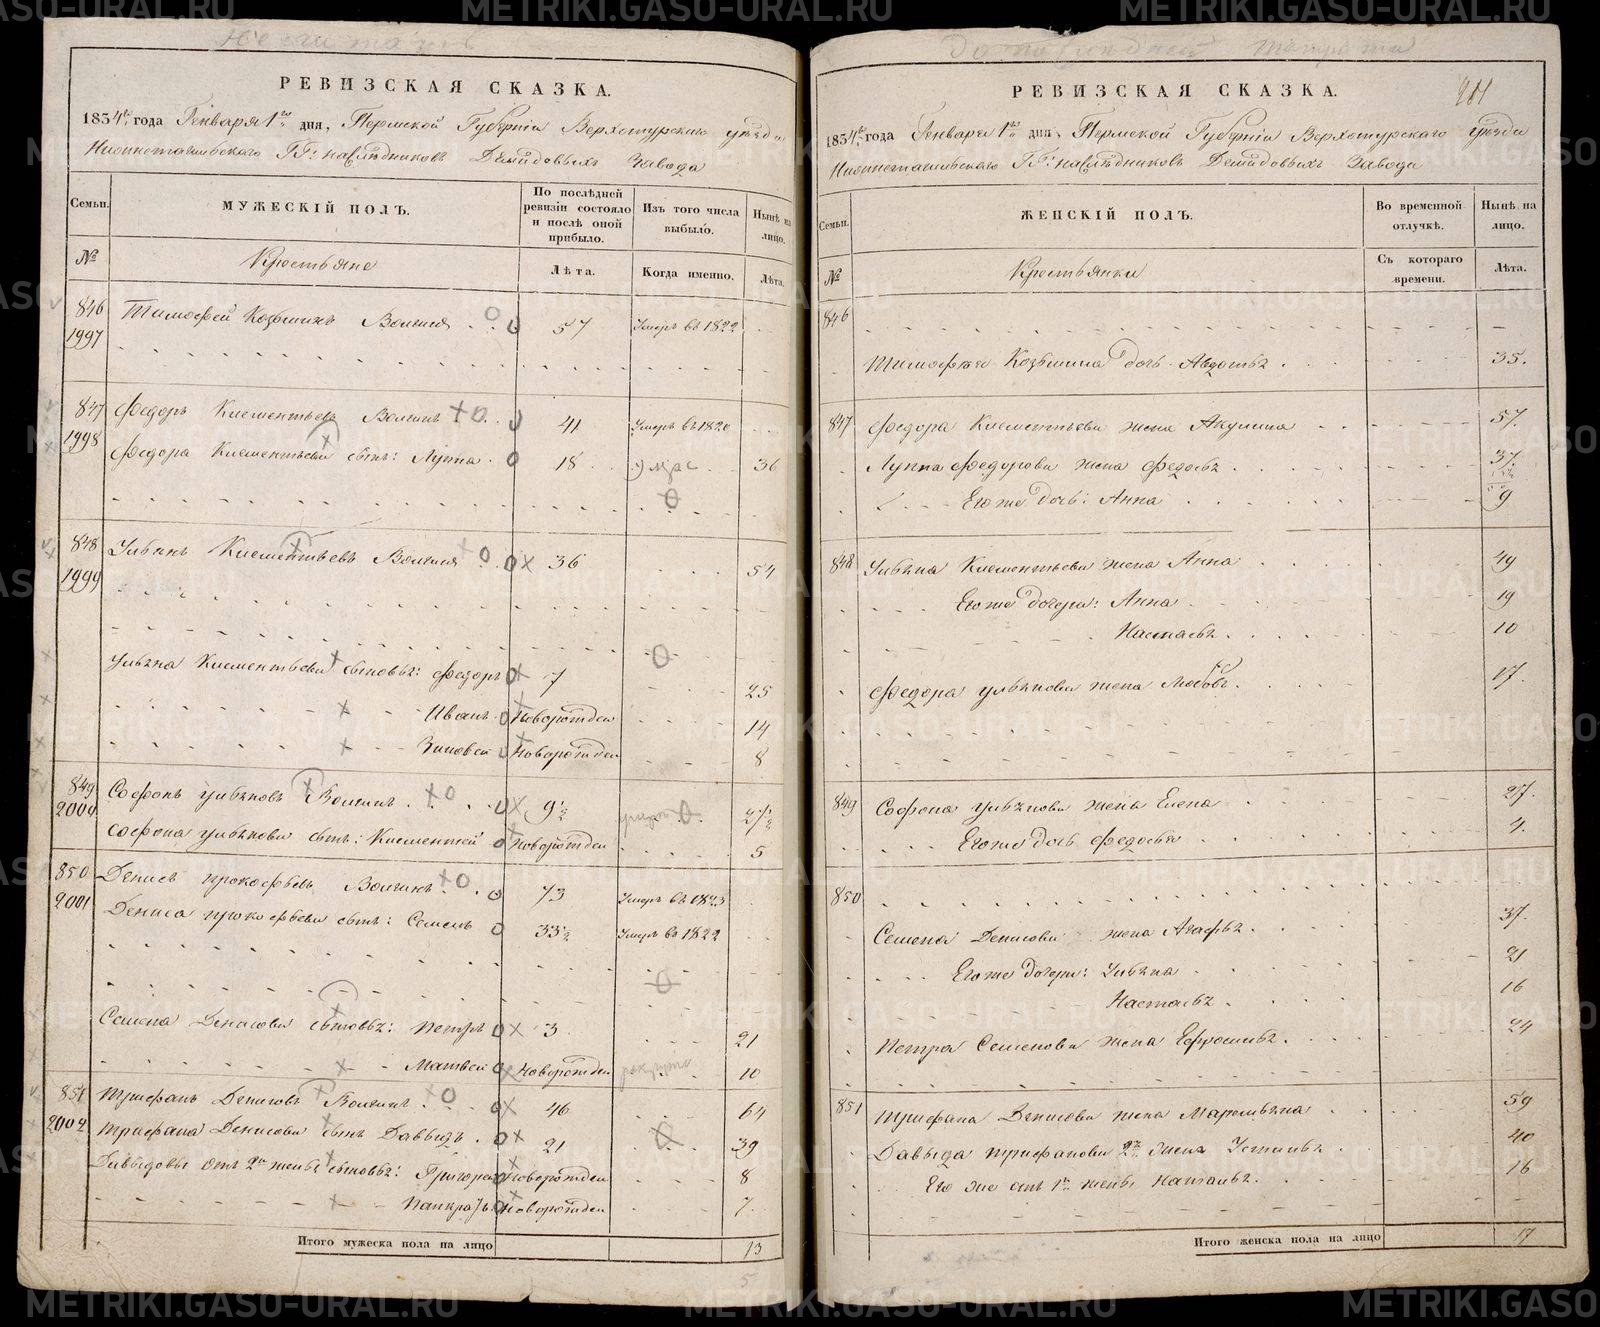 РЕВИЗСКАЯ СКАЗКА.
1834го года Генваря 1го дня, Пермской Губернiи Верхотурского уѣзда
Нижнетагильского ГГ: наслѣдниковъ Демидовыхъ Завода
Семьи. МУЖЕСКIЙ ПОЛЪ. По послѣдней ревизiи состояло и послѣ оной прибыло. Изъ того числа выбыло. Нынѣ на лицо.
№ Крестьяне Лѣта. Когда именно. Лѣта.
846 Тимофей Козьминъ Волгинъ 57 Умеръ въ 1822
1997
847 Федоръ Клементьевъ Волгинъ 41 Умеръ въ 1820
1998 Федора Клементьева сынъ: Лупа 18 умре 36
848 Ульянъ Клементьевъ Волгинъ 36 54
1999
Ульяна Клементьева сыновья: Федоръ 7 25
Иванъ Новорожден 14
Зиновей Новорожден 8
849 Софонъ Ульяновъ Волгинъ 9½ 27½
2000 Софона Ульянова сынъ: Клементей Новорожден 5
850 Денисъ Прокофьевъ Волгинъ 73 Умеръ въ 1823
2001 Дениса Прокофьева сынъ: Семенъ 33½ Умеръ въ 1822
Семена Денисова сыновья: Петръ 3 21
Матвей Новорожден 10
851 Трифанъ Денисовъ Волгинъ 46 64
2002 Трифана Денисова сынъ Давыдъ 21 39
Давыдовы отъ 2й жены сыновья: Григорей Новорожден 8
Панкратъ Новорожден 7
Итого мужеска пола на лицо 13
5
РЕВИЗСКАЯ СКАЗКА.
1834го года Генваря 1го дня, Пермской Губернiи Верхотурскаго уѣзда
Нижнетагильскаго ГГ: наслѣдниковъ Демидовыхъ Завода
Семьи. ЖЕНСКIЙ ПОЛЪ. Во временной отлучкѣ. Нынѣ на лицо.
№ Крестьянки Съ котораго времени. Лѣта.
846
Тимофея Козьмина дочь Авдотья 35.
847 Федора Клементьева жена Акулина 57.
Луппа Федорова жена Федосья 37
Его же дочь: Анна 9
848 Ульяна Клементьева жена Анна 49
Его же дочери: Анна 19
Настасья 10
Федора Ульянова жена Любовь 17.
849 Софона Ульянова жена Елена 27.
Его же дочь Федосья 4.
850
Семена Денисова жена Агафья 37.
Его же дочери: Ульяна 21
Настасья 16
Петра Семенова жена Ефросинья 24
851 Трифана Денисова жена Маремьяна 59
Давыда Трифанова 2я жена Устинья 40
Его же отъ 1й жены Наталья 16
Итого женска пола на лицо 17
METRIKI.GASO-URAL.RU